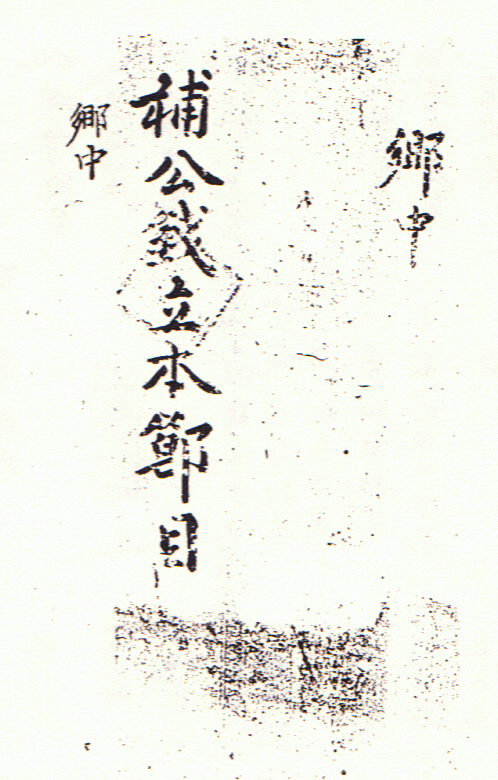 鄕中
補公錢立本節目
鄕中